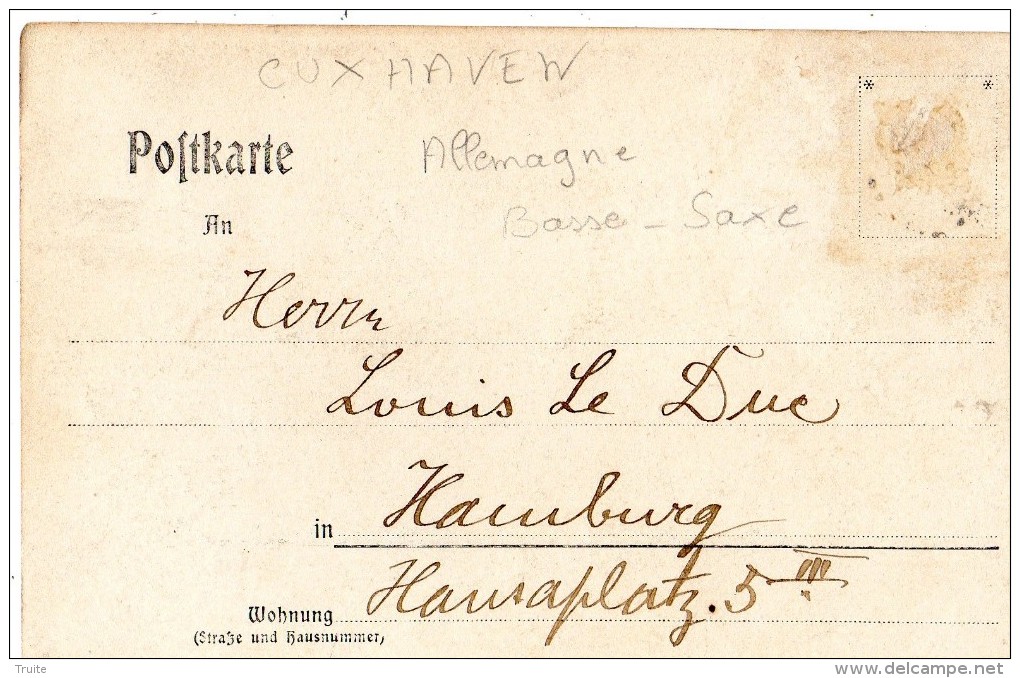 CUXHAVEN
Poſtkarte
Allemagne
An
Basse - Saxe
Herrn
Louis Le Duc
in Hamburg
Wohnung Hansaplatz. 5 III
(Straße und Hausnummer)
Truite
www.delcampe.net